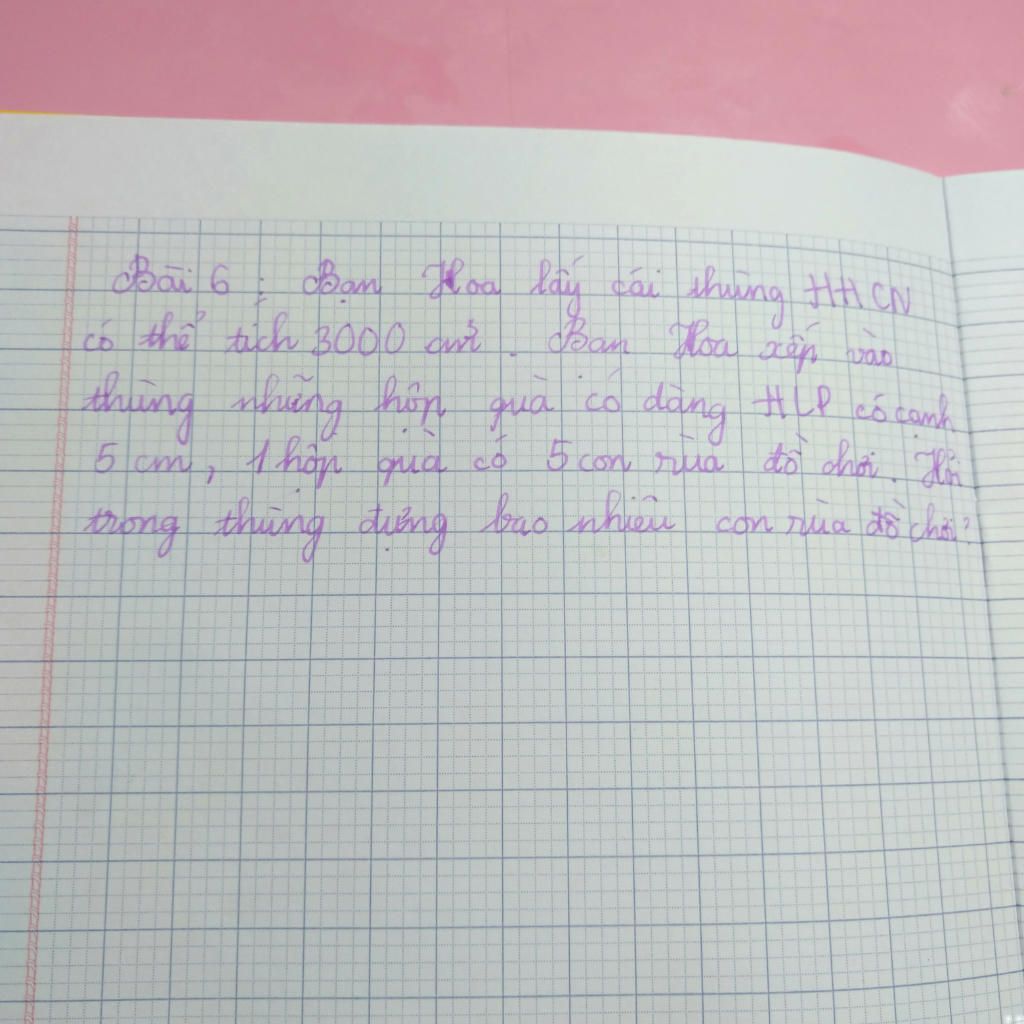 Bài 6 : Bạn Hoa lấy cái thùng HHCN
có thể tích 3000 cm³. Bạn Hoa xếp vào
thùng những hộp quà có dạng HLP có cạnh
5 cm, 1 hộp quà có 5 con rùa đồ chơi. Hỏi
trong thùng đựng bao nhiêu con rùa đồ chơi?